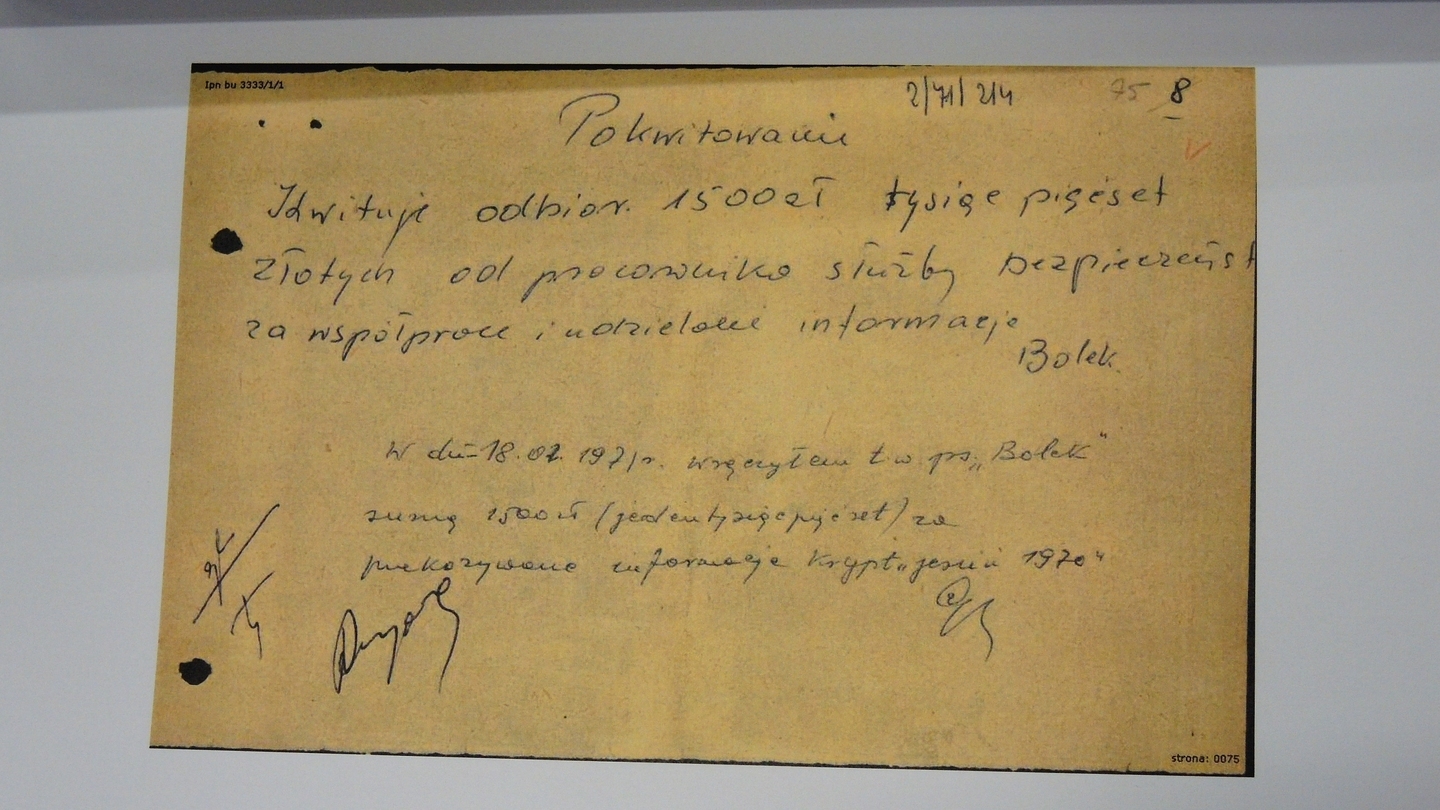 Ipn bu 3333/1/1
2/71/214 75 8
Pokwitowanie
Kwituje odbior. 1500zł tysiąc pięćset
Złotych od pracownika służby bezpieczeńst
za współprace i udzielanie informacje
Bolek.
W dn. 18.01.1971r. wręczyłem t w ps. „Bolek"
sumę 1500zł (jeden tysiąc pięćset) za
przekazywane informacje Krypt. „jesień 1970"
strona: 0075